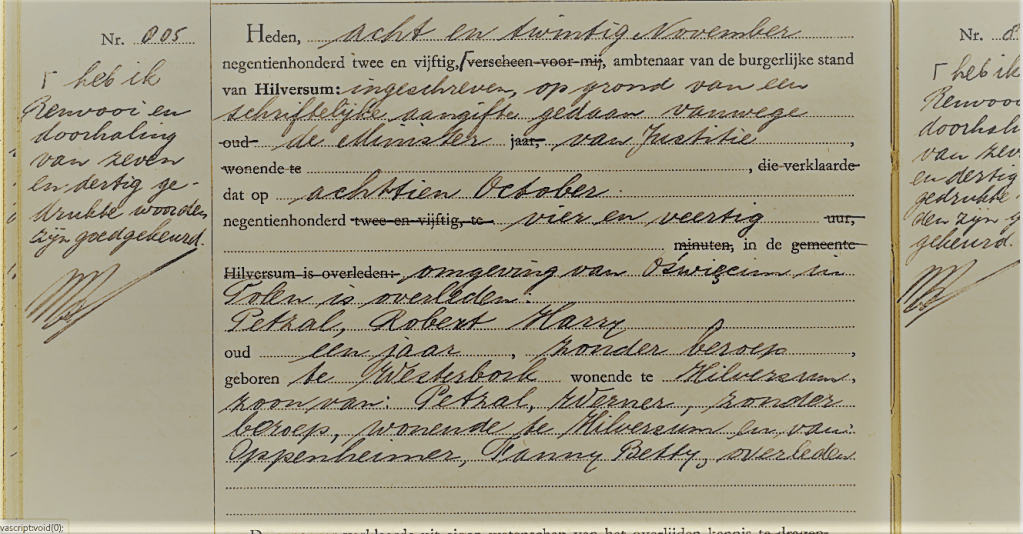 Nr. 805
┌ heb ik
Renvooi en
doorhaling
van zeven
en dertig ge-
drukte woorden
zijn goedgekeurd.
Heden, acht en twintig November
negentienhonderd twee en vijftig, ┌ verscheen voor mij, ambtenaar van de burgerlijke stand
van Hilversum: ingeschreven, op grond van een
schriftelijke aangifte gedaan vanwege
oud de Minister jaar, van Justitie ,
wonende te , die verklaarde
dat op achttien October.
negentienhonderd twee en vijftig, te vier en veertig uur,
minuten, in de gemeente
Hilversum is overleden: omgeving van Oświęcim in
Polen is overleden:
Petzal, Robert Harry
oud een jaar , zonder beroep ,
geboren te Westerbork wonende te Hilversum,
zoon van: Petzal, Werner, zonder
beroep, wonende te Hilversum en van:
Oppenheimer, Fanny Betty, overleden
Nr. 8
┌ heb ik
Renvooi
doorhali
van zev
en dertig
gedrukte
den zijn g
gekeurd.
vascript:void(0);